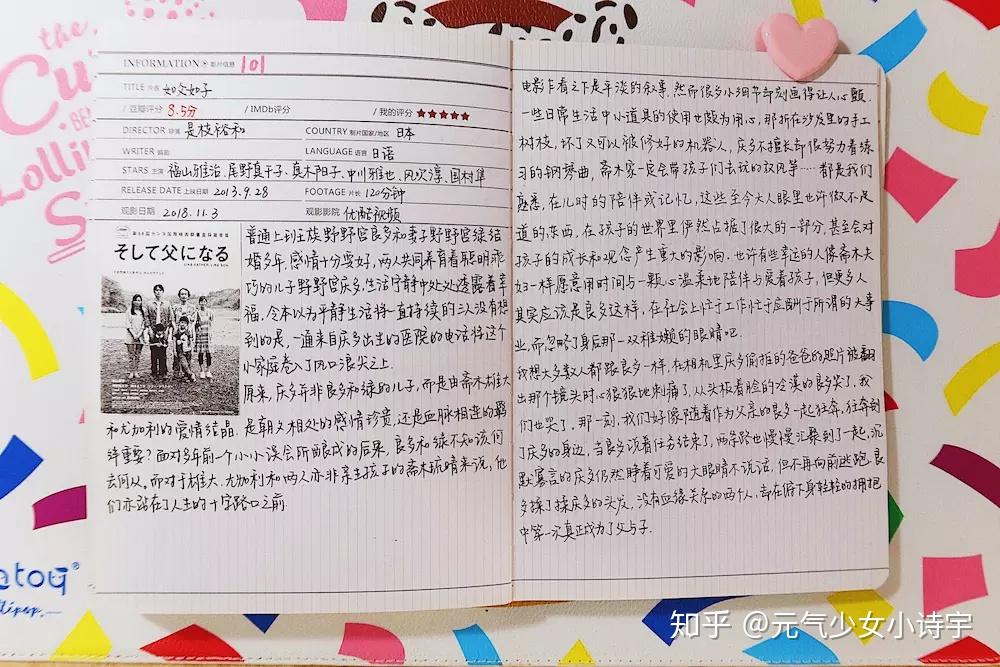 the
Cu
BE
Lolli
S
INFORMATION 影片信息 101
TITLE 片名 如父如子
/ 豆瓣评分 8.5分 / IMDb评分 / 我的评分 ★★★★★
DIRECTOR 导演 是枝裕和 COUNTRY 制片国家/地区 日本
WRITER 编剧 LANGUAGE 语言 日语
STARS 主演 福山雅治、尾野真千子、真木阳子、中川雅也、风吹淳、国村隼
RELEASE DATE 上映日期 2013.9.28 FOOTAGE 片长 120分钟
观影日期 2018.11.3 观影影院 优酷视频
そして父になる
普通上班族野野宫良多和妻子野野宫绿结
婚多年,感情十分要好,两人共同养育着聪明乖
巧的儿子野野宫庆多,生活宁静中处处透露着幸
福。令本以为平静生活将一直持续的三人没有想
到的是,一通来自庆多出生的医院的电话将这个
小家庭卷入了风口浪尖之上.
原来,庆多并非良多和绿的儿子,而是由斋木雄大
和尤加利的爱情结晶.是朝夕相处的感情珍贵,还是血脉相连的羁
绊重要?面对多年前一个小小误会所酿成的后果,良多和绿不知该何
去何从。而对于雄大、尤加利和两人亦非亲生孩子的斋木琉晴来说,他
们亦站在了人生的十字路口之前.
电影乍看之下是平淡的叙事,然而很多小细节却刻画得让人心颤.
一些日常生活中小道具的使用也颇为用心,那折在沙发里的手工
树枝,坏了又可以被修好的机器人,庆多不擅长却很努力着练
习的钢琴曲,斋木家一定会带孩子们去玩的放风筝……都是我们
熟悉,在儿时的陪伴或记忆,这些至今大人眼里也许微不足
道的东西,在孩子的世界里俨然占据了很大的一部分,甚至会对
孩子的成长和观念产生重大的影响.也许有些幸运的人像斋木夫
妇一样愿意用时间与一颗心温柔地陪伴与爱着孩子,但更多人
其实应该是良多这样,在社会上忙于工作忙于应酬于所谓的大事
业,而忽略了身后那一双稚嫩的眼睛吧.
我想大多数人都跟良多一样,在相机里庆多偷拍的爸爸的照片被翻
出那个镜头时心狠狠地刺痛了,从头板着脸的冷漠的良多哭了,我
们也哭了.那一刻,我们好像随着作为父亲的良多一起狂奔,狂奔到
了庆多的身边,当良多说着任务结束了,两条路也慢慢汇聚到了一起,沉
默寡言的庆多仍然睁着可爱的大眼睛不说话,但不再向前逃跑.良
多揉了揉庆多的头发,没有血缘关系的两个人,却在俯下身轻轻的拥抱
中第一次真正成为了父与子.
atoy®
知乎 @元气少女小诗宇